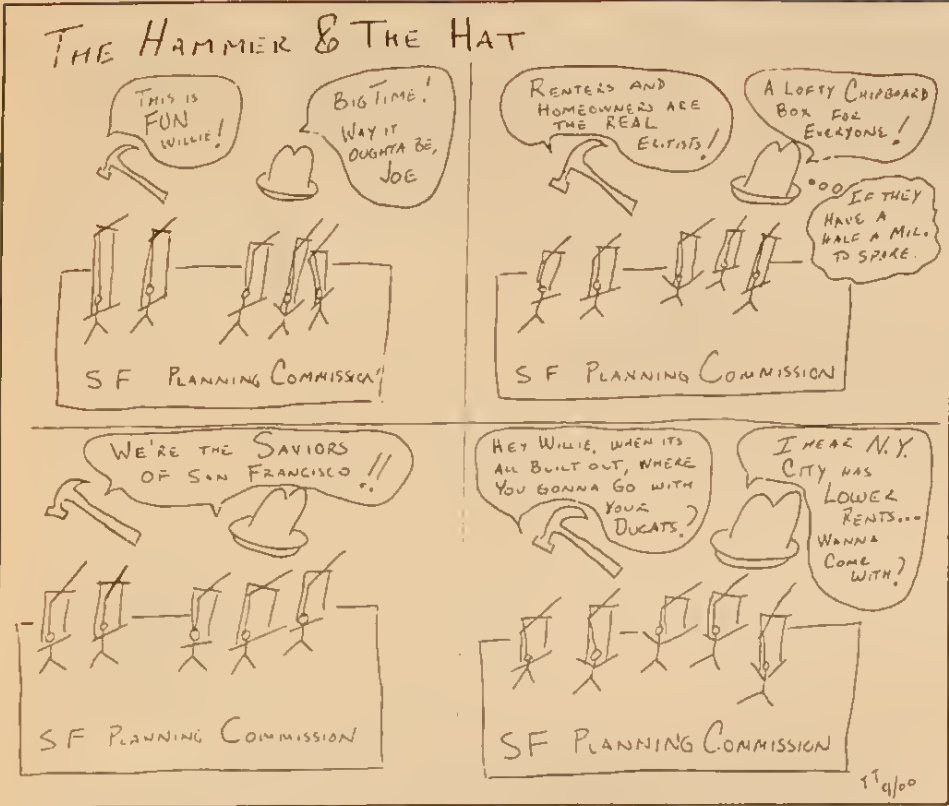 THE HAMMER & THE HAT
THIS IS
FUN
WILLIE!
BIG TIME!
WAY IT
OUGHTA BE,
JOE
SF PLANNING COMMISSION
RENTERS AND
HOMEOWNERS ARE
THE REAL
ELITISTS!
A LOFTY CHIPBOARD
BOX FOR
EVERYONE!
IF THEY
HAVE A
HALF A MIL.
TO SPARE.
SF PLANNING COMMISSION
WE'RE THE SAVIORS
OF SAN FRANCISCO!!
SF PLANNING COMMISSION
HEY WILLIE, WHEN ITS
ALL BUILT OUT, WHERE
YOU GONNA GO WITH
YOUR
DUCATS?
I HEAR N.Y.
CITY HAS
LOWER
RENTS...
WANNA
COME
WITH?
SF PLANNING COMMISSION
TT 9/00